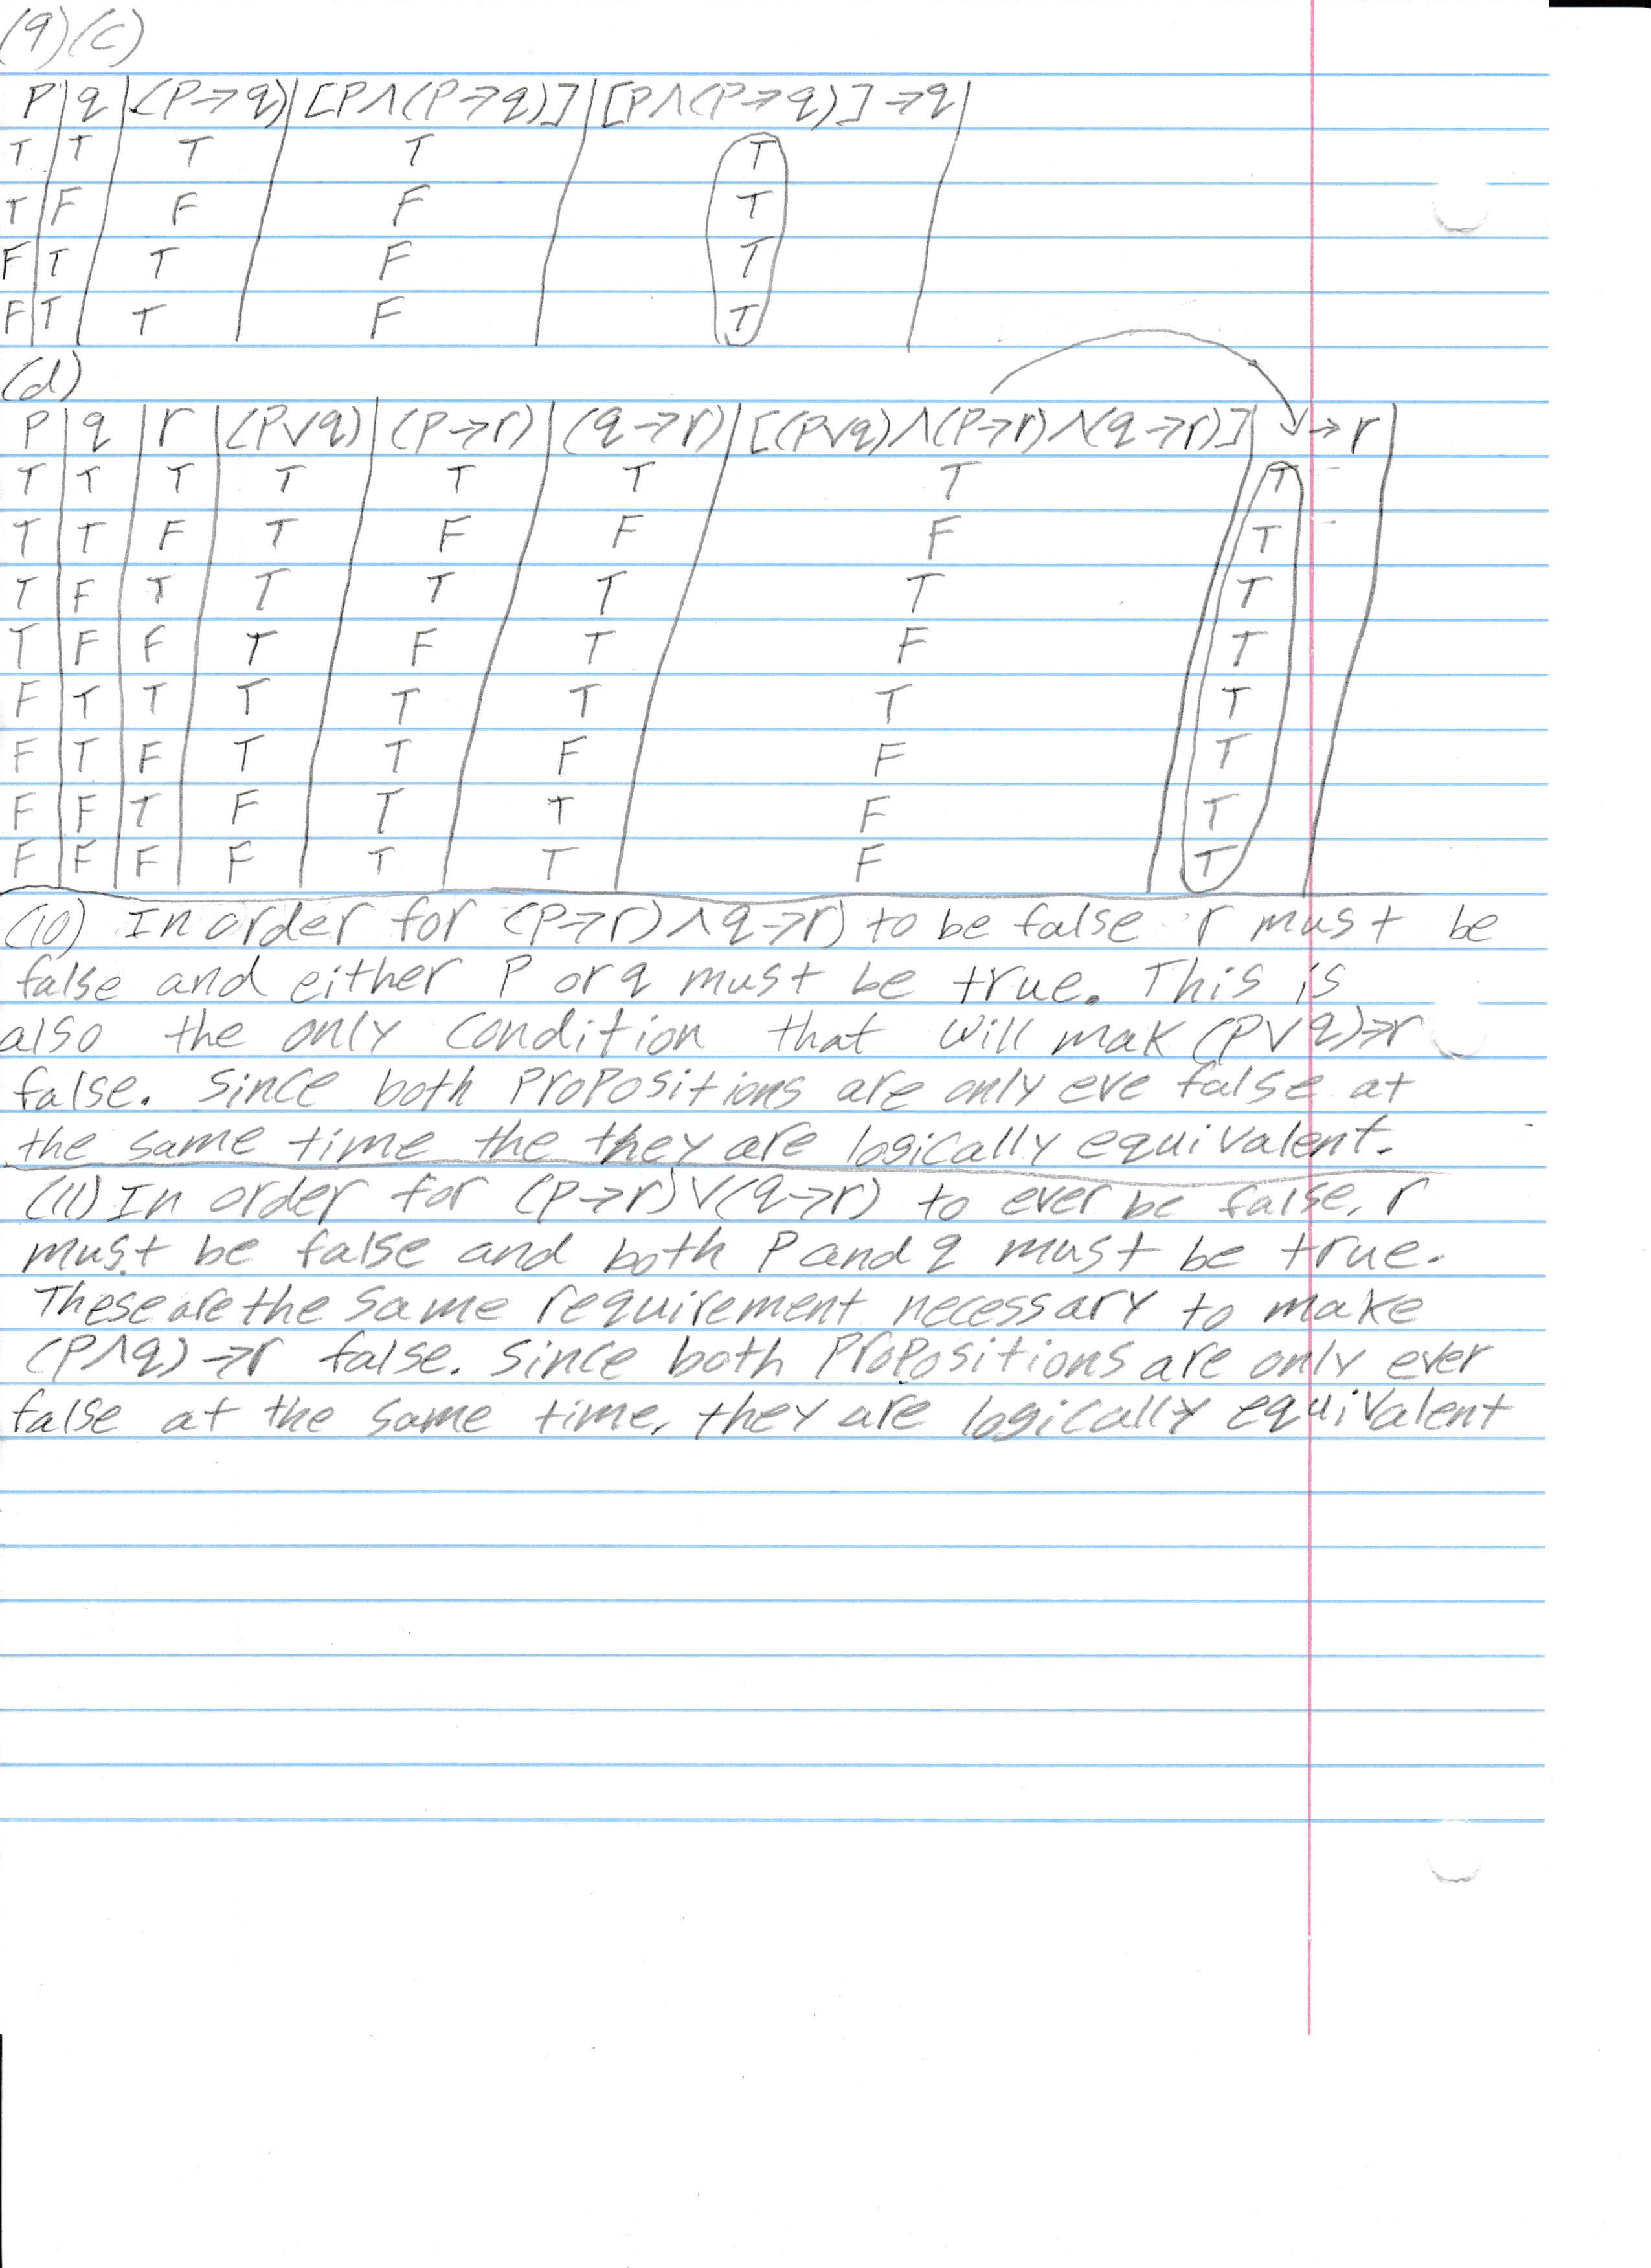 (9)(c)
P | q | (P→q) | [P∧(P→q)] | [P∧(P→q)]→q |
T | T | T | T | T
T | F | F | F | T
F | T | T | F | T
F | T | T | F | T
(d)
P | q | r | (P∨q) | (P→r) | (q→r) | [(P∨q)∧(P→r)∧(q→r)] | →r |
T | T | T | T | T | T | T | T
T | T | F | T | F | F | F | T
T | F | T | T | T | T | T | T
T | F | F | T | F | T | F | T
F | T | T | T | T | T | T | T
F | T | F | T | T | F | F | T
F | F | T | F | T | T | F | T
F | F | F | F | T | T | F | T
(10) In order for (P→r)∧q→r) to be false r must be
false and either P or q must be true. This is
also the only condition that will mak (P∨q)→r
false. Since both Propositions are only eve false at
the same time the they are logically equivalent.
(11) In order for (P→r)∨(q→r) to ever be false, r
must be false and both P and q must be true.
These are the same requirement necessary to make
(P∧q)→r false. Since both Propositions are only ever
false at the same time, they are logically equivalent